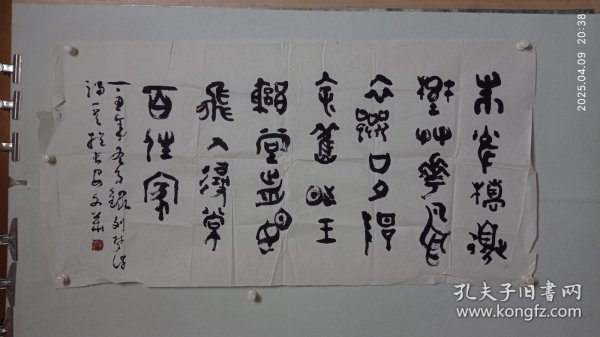 朱雀橋邊
野艸華烏
衣巷口夕陽
斜舊時王
謝堂前燕
飛入尋常
百姓家
丁丑年錄劉夢得
詩一首於長安文華
2025.04.09 20:38
孔夫子旧书网
www.kongfz.com